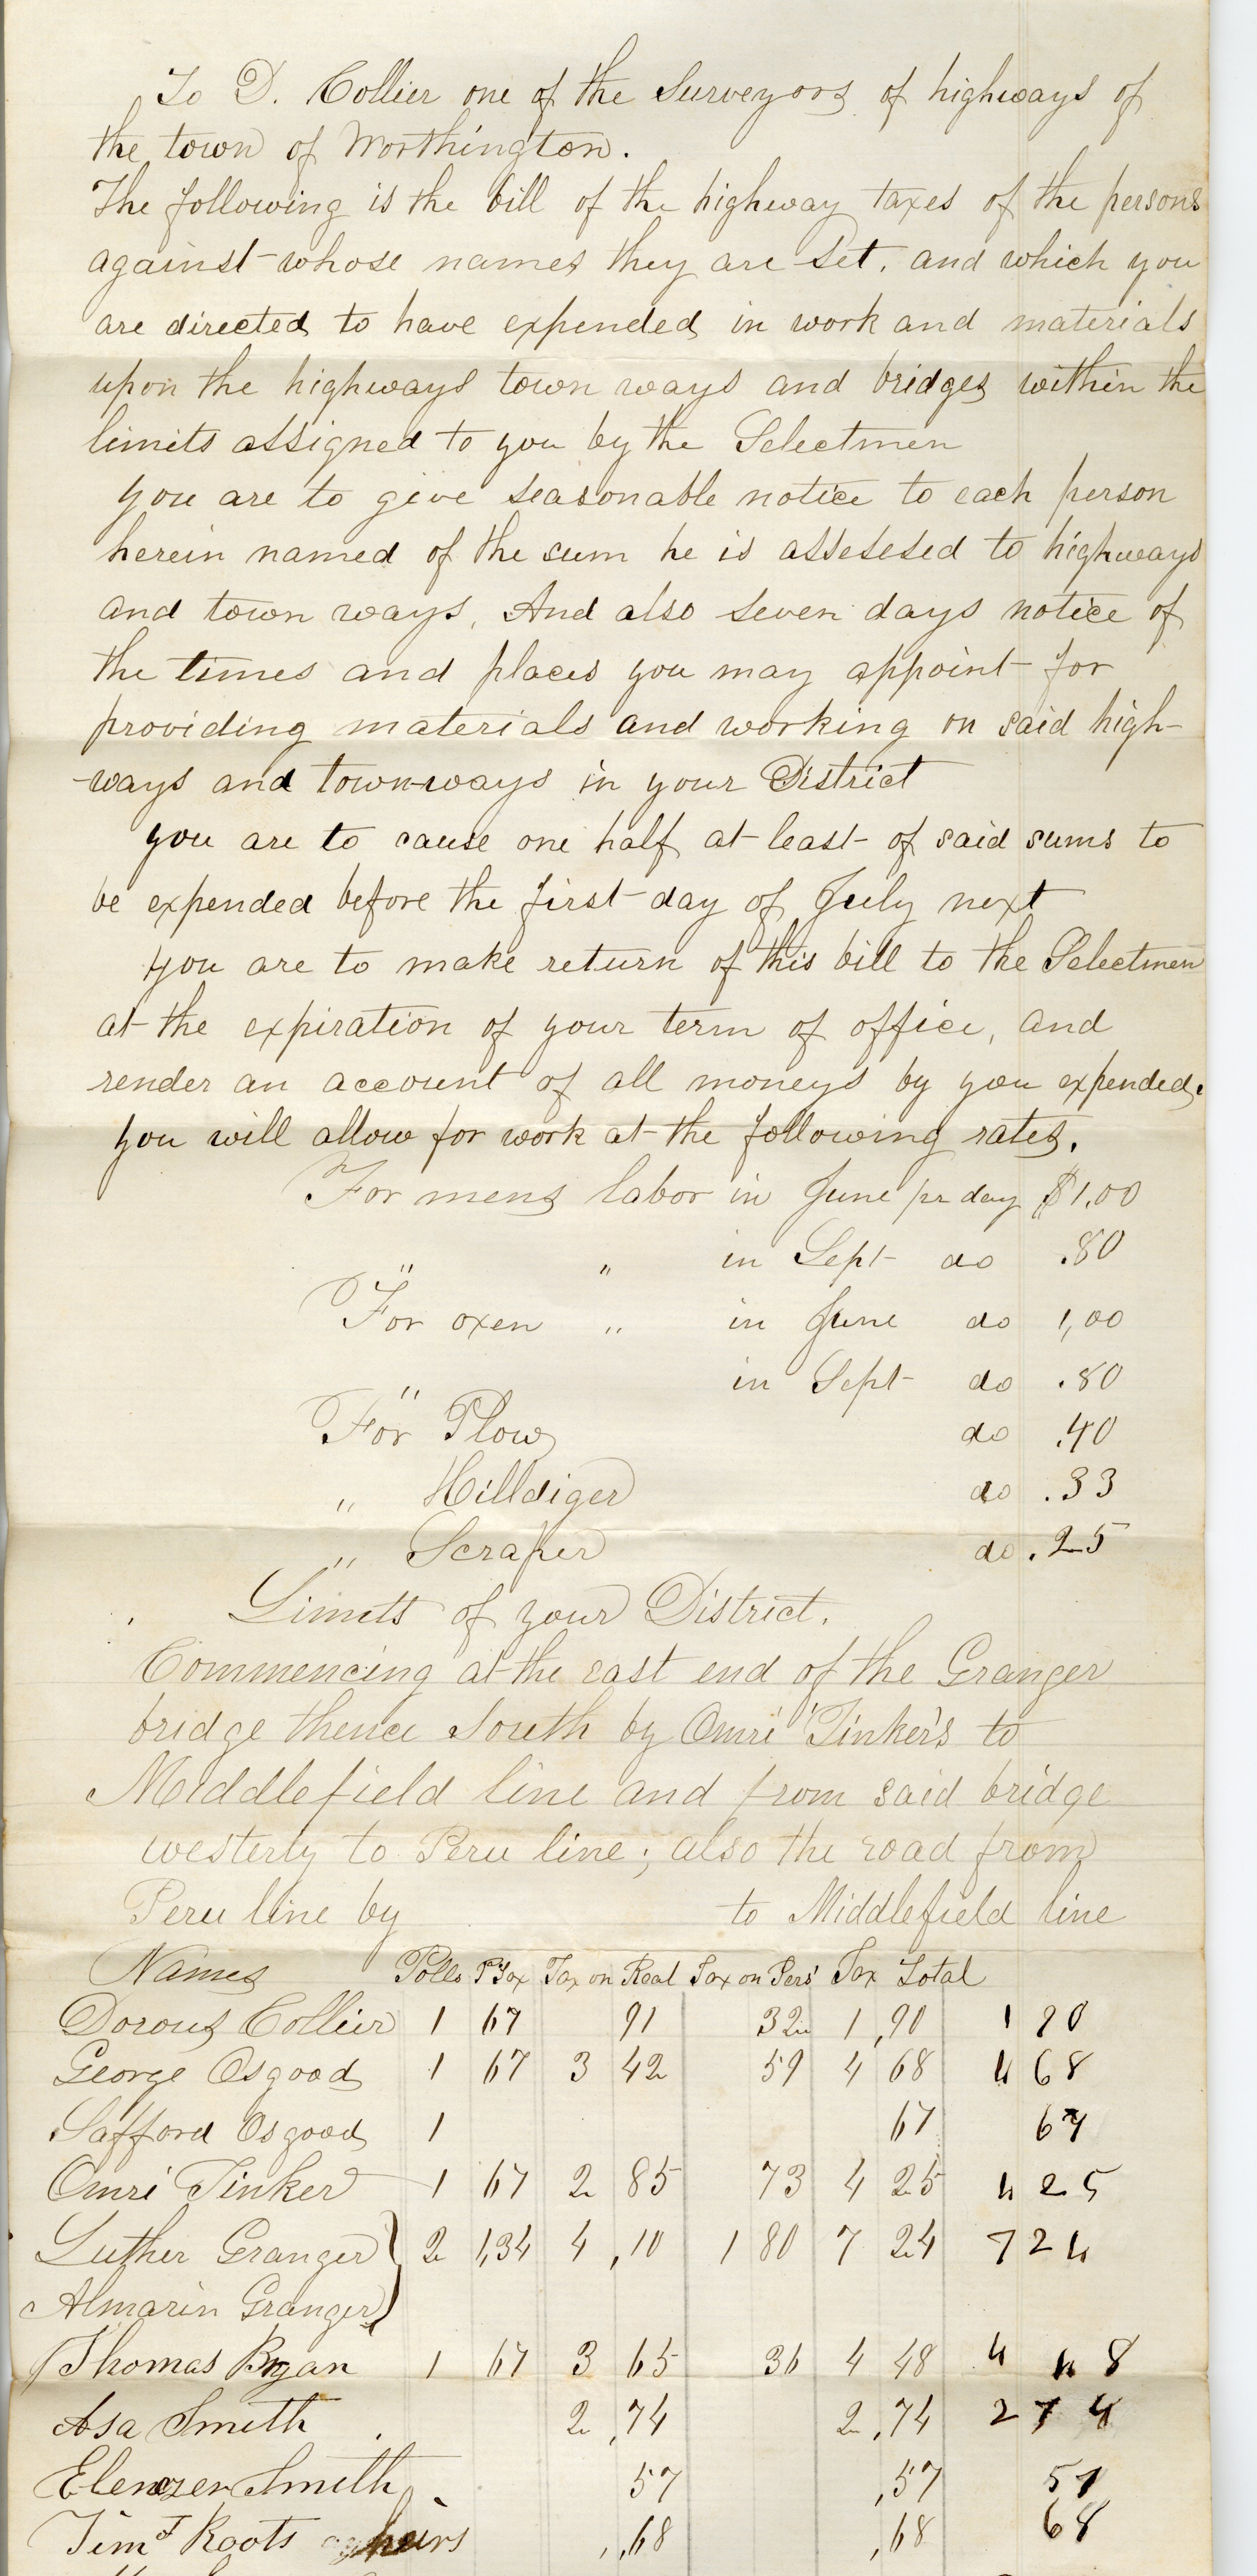 To D. Collier one of the Surveyors of highways of
the town of Worthington.
The following is the bill of the highway taxes of the persons
against whose names they are set, and which you
are directed to have expended in work and materials
upon the highways town ways and bridges within the
limits assigned to you by the Selectmen
you are to give seasonable notice to each person
herein named of the sum he is assesesed to highways
and town ways, And also seven days notice of
the times and places you may appoint for
providing materials and working on said high-
-ways and town-ways in your District
you are to cause one half at least of said sums to
be expended before the first day of July next
you are to make return of this bill to the Selectmen
at the expiration of your term of office, and
render an account of all moneys by you expended.
you will allow for work at the following rates.
For mens labor in June pr day $1.00
" " in Sept do .80
For oxen " in June do 1,00
" in Sept do .80
For Plow do .40
" Hilldiger do .33
" Scraper do .25
Limits of your District.
Commencing at the east end of the Granger
bridge thence South by Omri Tinker's to
Middlefield line and from said bridge
westerly to Peru line; also the road from
Peru line by to Middlefield line
Names Polls PTax Tax on Real Tax on Pers' Tax Total
Dorous Collier 1 67 91 32 1,90 1 90
George Osgood 1 67 3 42 59 4 68 4 68
Safford Osgood 1 67 67
Omri Tinker 1 67 2 85 73 4 25 4 25
Luther Granger } 2 1,34 4,10 1 80 7 24 7 24
Almarin Granger }
Thomas Bryan 1 67 3 65 36 4 48 4 48
Asa Smith 2,74 2,74 2 74
Ebenezer Smith 57 ,57 57
Timt Roots heirs ,68 ,68 68